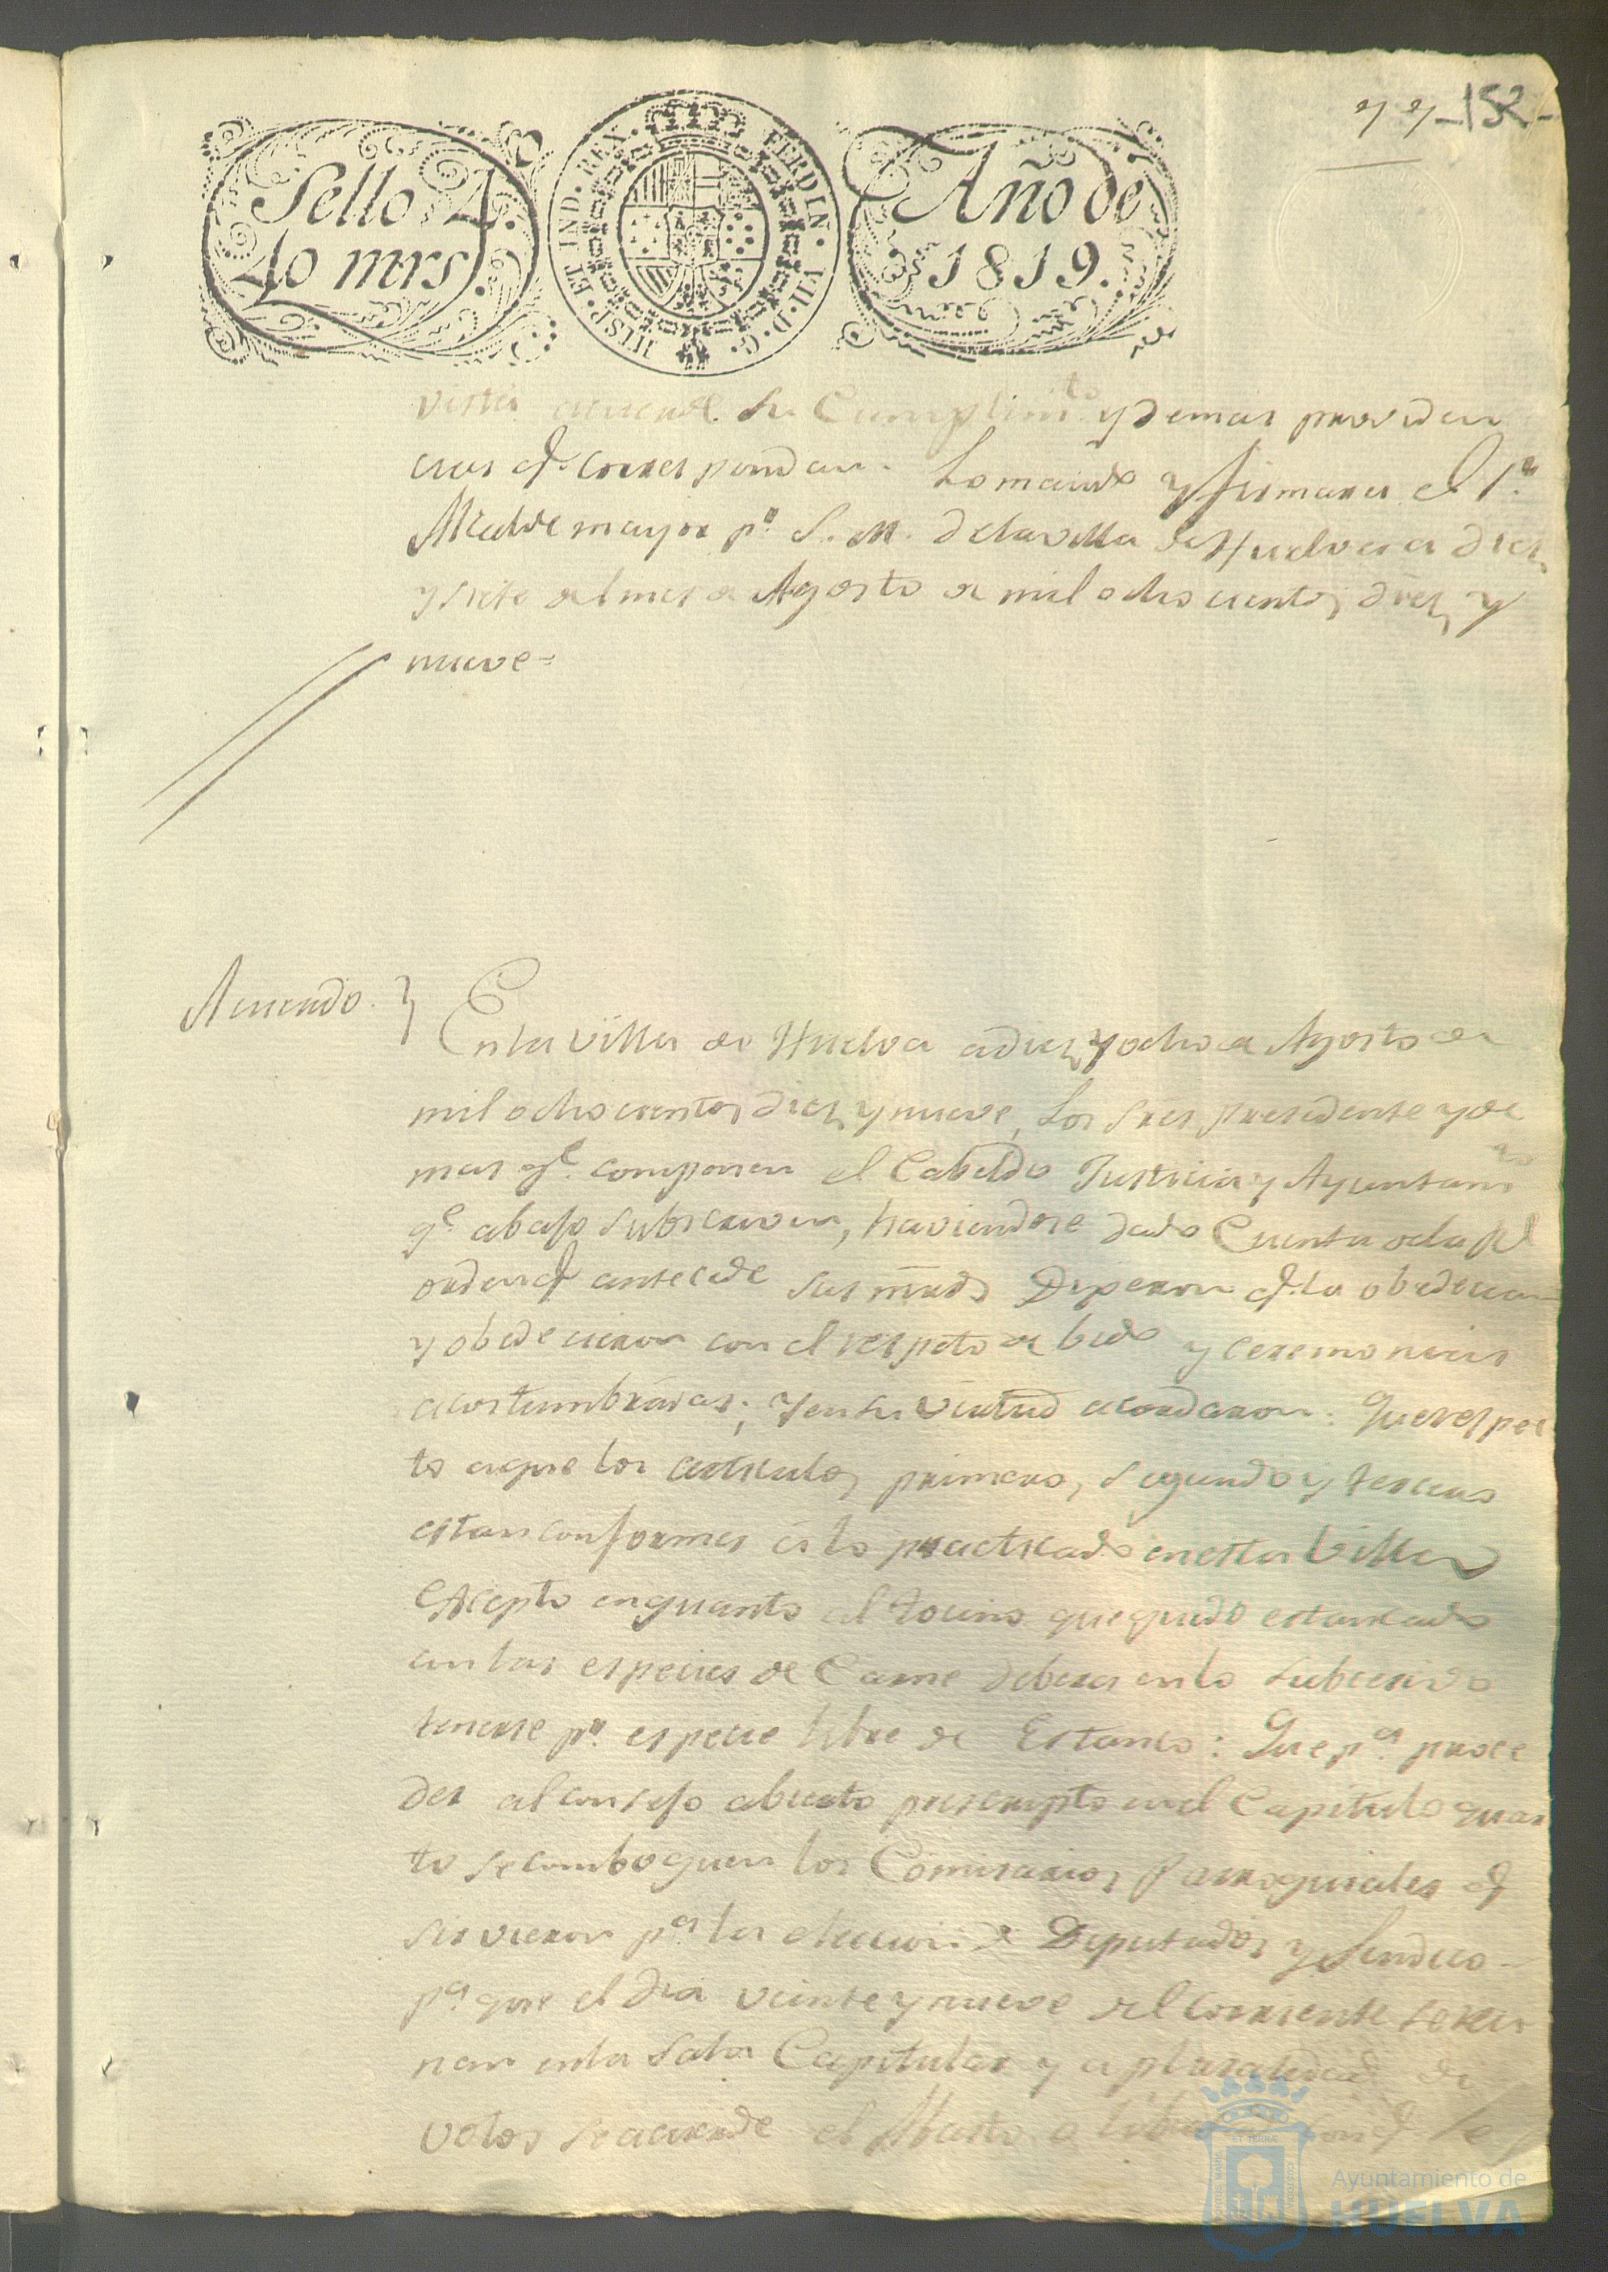 77 - 152 -
Sello 4º
40 mrs.
FERDIN. VII. D. G. HISP. ET IND. REX.
Año de
1819.
vista acuerde su Cumplimto y demas providen
cias qe correspondan. Lo mando y firmara el Sr
Alcalde mayor pr S. M. de la villa de Huelva a diez
y siete del mes de Agosto de mil ochocientos diez y
nueve =
Acuerdo.
En la Villa de Huelva a diez y ocho de Agosto de
mil ochocientos diez y nueve, Los Sres Presidente y de
mas qe componen el Cabildo Justicia y Ayuntamto
qe abajo subscriven, haviendose dado Cuenta de la Rl
orden qe antecede sus mrds Dixeron qe la obedecian
y obedecieron con el respeto debido y ceremonias
acostumbradas; y en su virtud acordaron: Que respec
to a que los articulos primero, segundo y tercero
estan conformes a lo practicado en esta Villa
excepto en quanto al tocino que quedo estancado
en las especies de Carne debera en lo subcesivo
tenerse pr especie libre de Estanco: Que pa proce
der al consejo abierto prescripto en el Capitulo quar
to se comboquen los Comisarios Parroquiales qe
sirvieron pa la eleccion de Diputados y Sindico
pa que el dia veinte y nueve del corriente se reu
nan en la Sala Capitular y a pluralidad de
votos se acuerde el Abasto o libertad con qe se
Ayuntamiento de
HUELVA